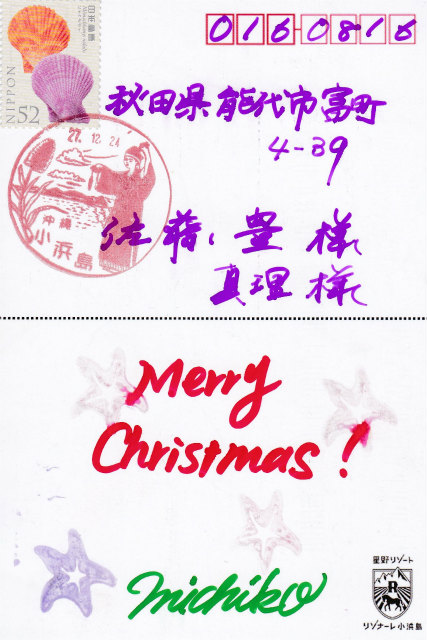 NIPPON
52
016-0816
秋田県能代市富町
4-39
佐藤 豊 様
真理 様
27.12.24
沖縄
小浜島
Merry
Christmas!
michiko
星野リゾート
R
リゾナーレ小浜島